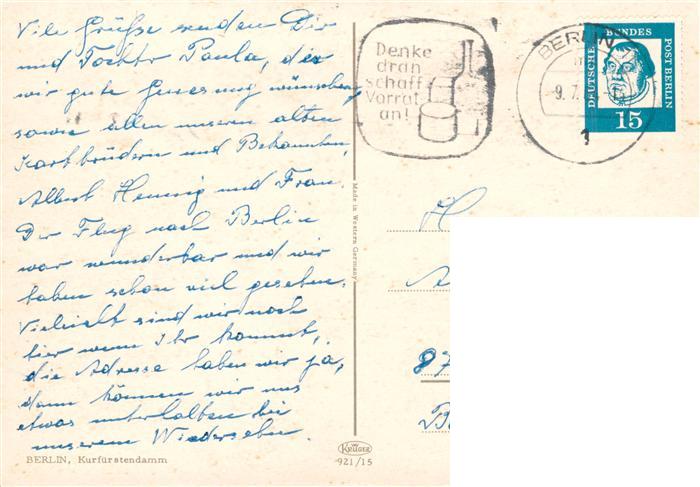 Viele Grüße senden Dir
und Tochter Paula, der
wir gute Genesung wünschen,
sowie allen unseren alten
Kartbrüdern und Bekannten,
Albert Hennig und Frau.
Der Flug nach Berlin
war wunderbar und wir
haben schon viel gesehen.
Vielleicht sind wir noch
hier wenn Ihr kommt,
die Adresse haben wir ja,
dann können wir uns
etwas unterhalten bei
unserem Wiedersehn.
BERLIN, Kurfürstendamm
Made in Western Germany
KRÜGER
921/15
Denke
dran
schaff
Vorrat
an!
BERLIN
9.7.
1
DEUTSCHE BUNDES POST BERLIN
15
H
A
87